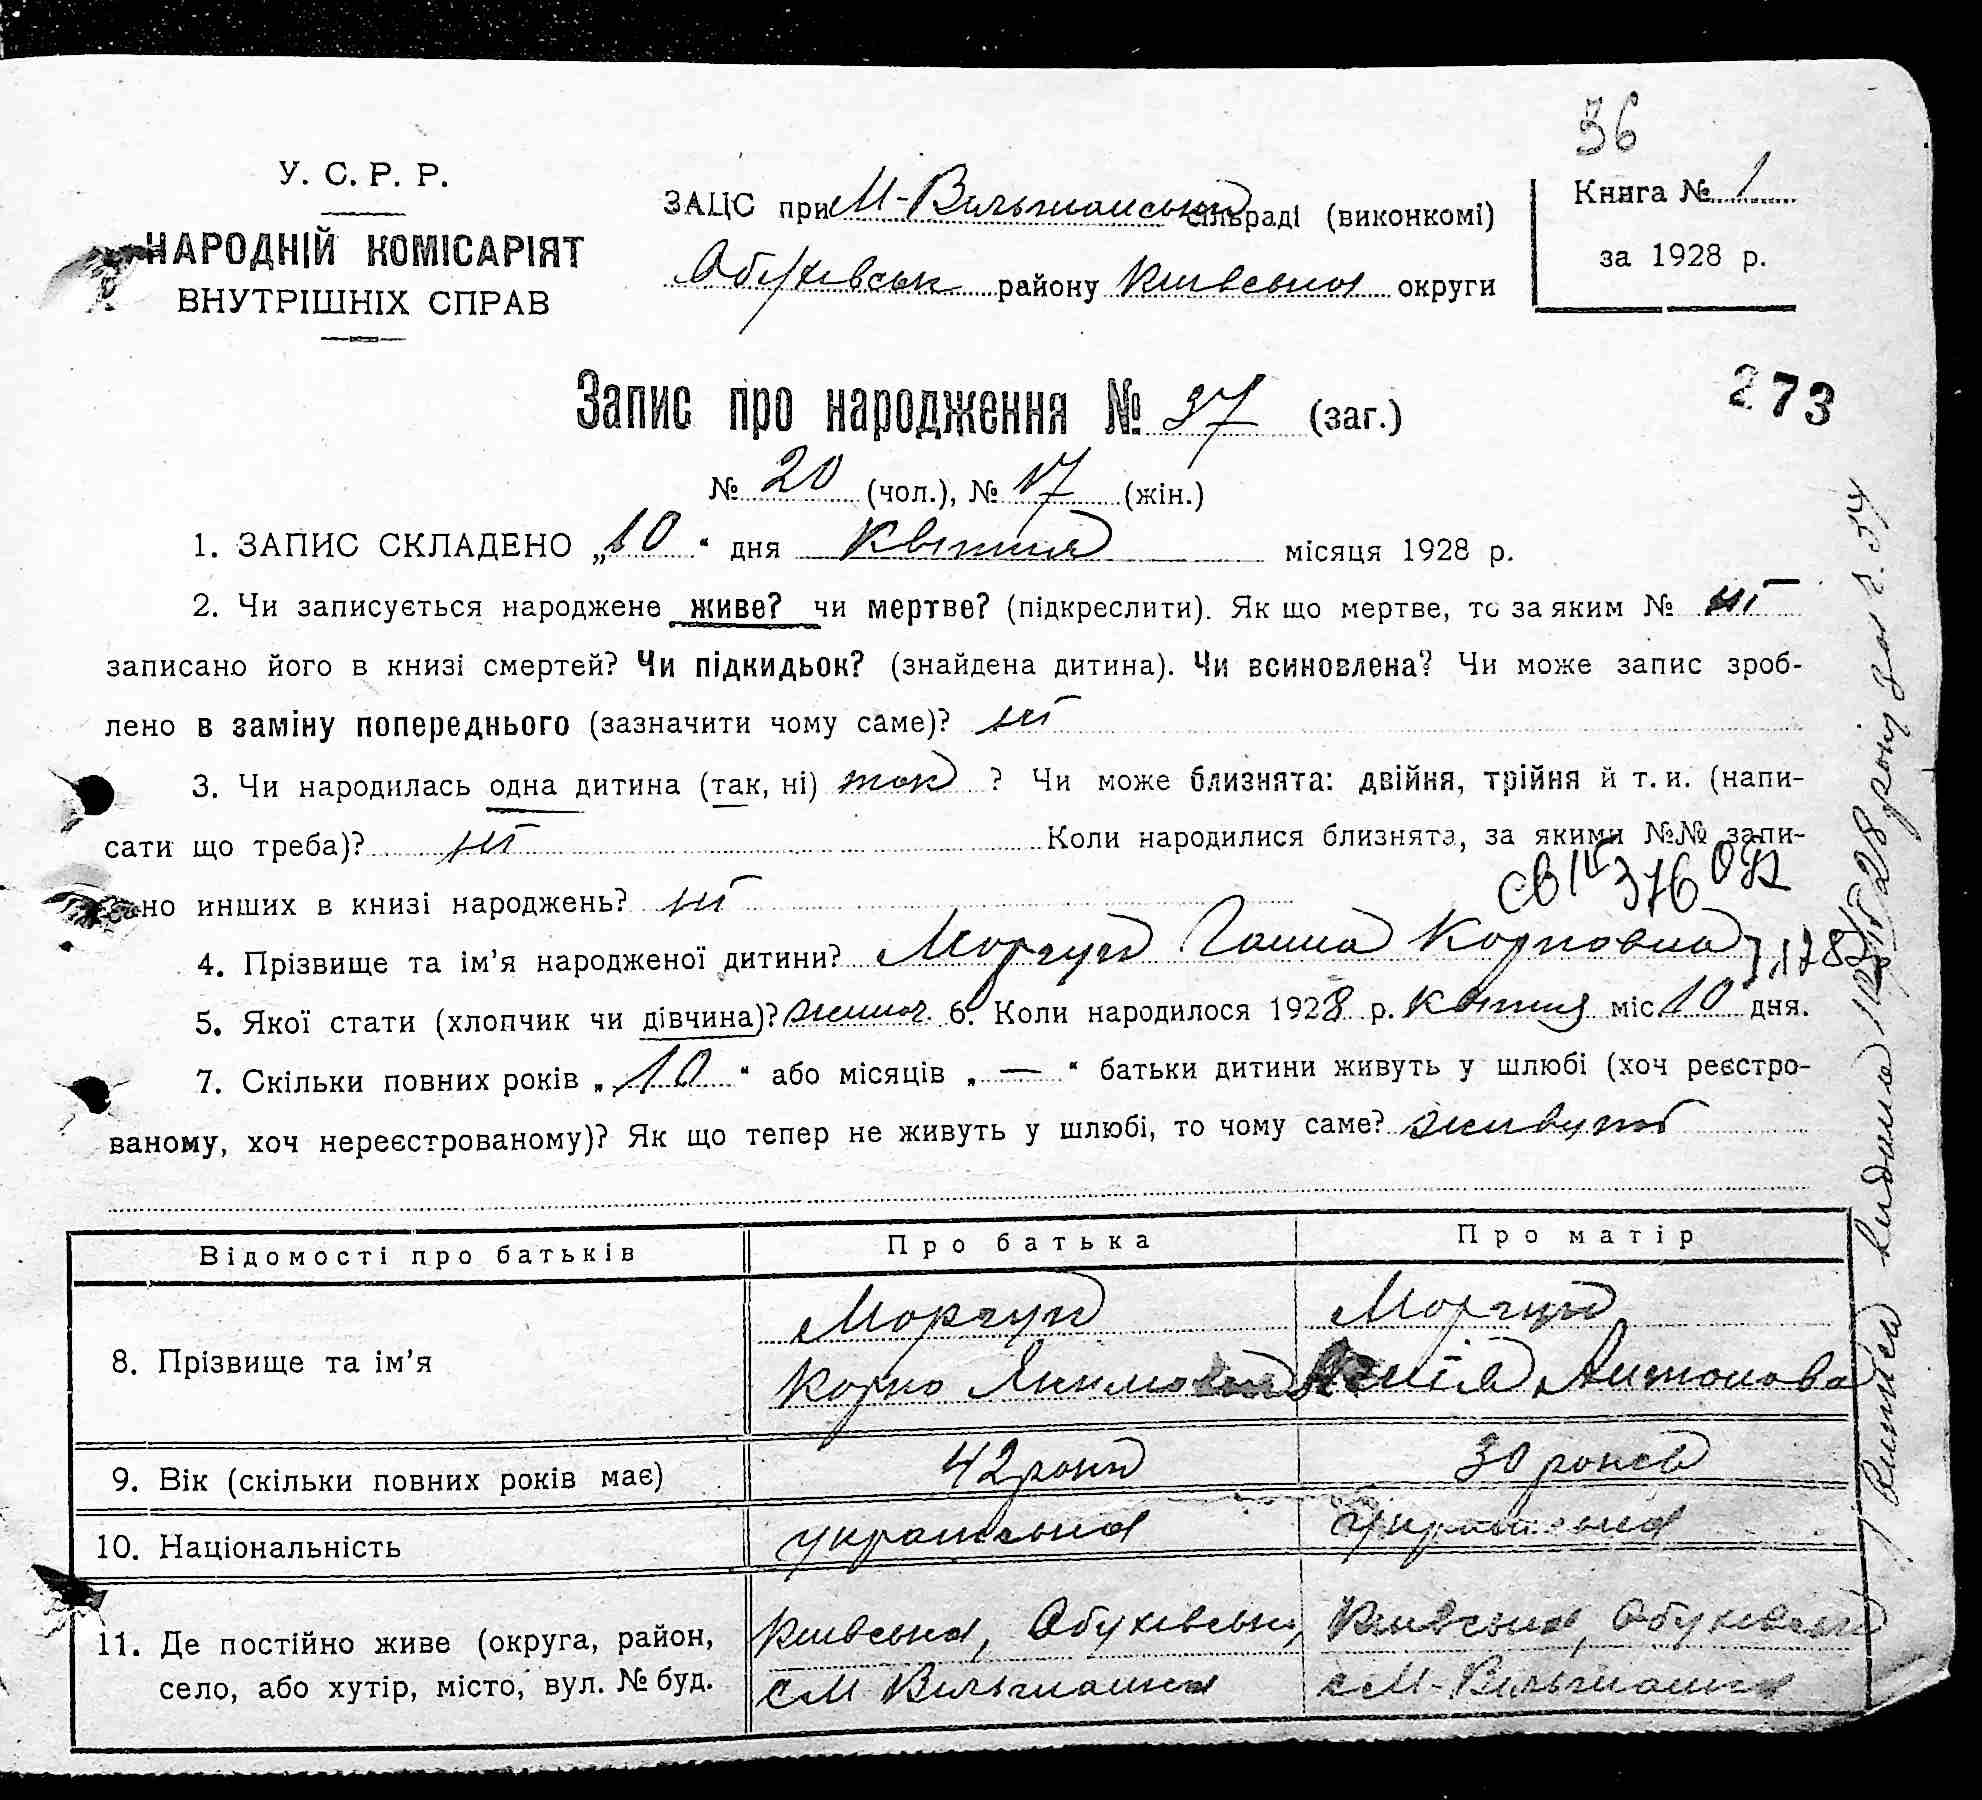 36
У. С. Р. Р.
НАРОДНІЙ КОМІСАРІЯТ
ВНУТРІШНІХ СПРАВ
ЗАЦС при М-Вильшанській сільраді (виконкомі)
Обухівськ району Київська округи
Книга № 1
за 1928 р.
273
Запис про народження № 37 (заг.)
№ 20 (чол.), № 17 (жін.)
1. ЗАПИС СКЛАДЕНО „10“ дня Квітня місяця 1928 р.
2. Чи записується народжене живе? чи мертве? (підкреслити). Як що мертве, то за яким № ні
записано його в книзі смертей? Чи підкидьок? (знайдена дитина). Чи всиновлена? Чи може запис зроб-
лено в заміну попереднього (зазначити чому саме)? ні
3. Чи народилась одна дитина (так, ні) так ? Чи може близнята: двійня, трійня й т. и. (напи-
сати що треба)? ні Коли народилися близнята, за якими №№ запи-
сано инших в книзі народжень? ні
св ІV 376 042
4. Прізвище та ім’я народженої дитини? Моргун Ганна Карповна
5. Якої стати (хлопчик чи дівчина)? жіноч. 6. Коли народилося 1928 р. Квітня міс 10 дня.
7. Скільки повних років „10“ або місяців „—“ батьки дитини живуть у шлюбі (хоч реєстро-
ваному, хоч нереєстрованому)? Як що тепер не живуть у шлюбі, то чому саме? живуть
Відомості про батьків Про батька Про матір
8. Прізвище та ім’я Моргун Моргун
Карпо Антонова
9. Вік (скільки повних років має) 42 роки 30 років
10. Національність українська українська
11. Де постійно живе (округа, район, Київська, Обухівськ, Київська, Обухівськ
село, або хутір, місто, вул. № буд. с М Вильшанка с М-Вильшанка
Випись видана 1928 року за №